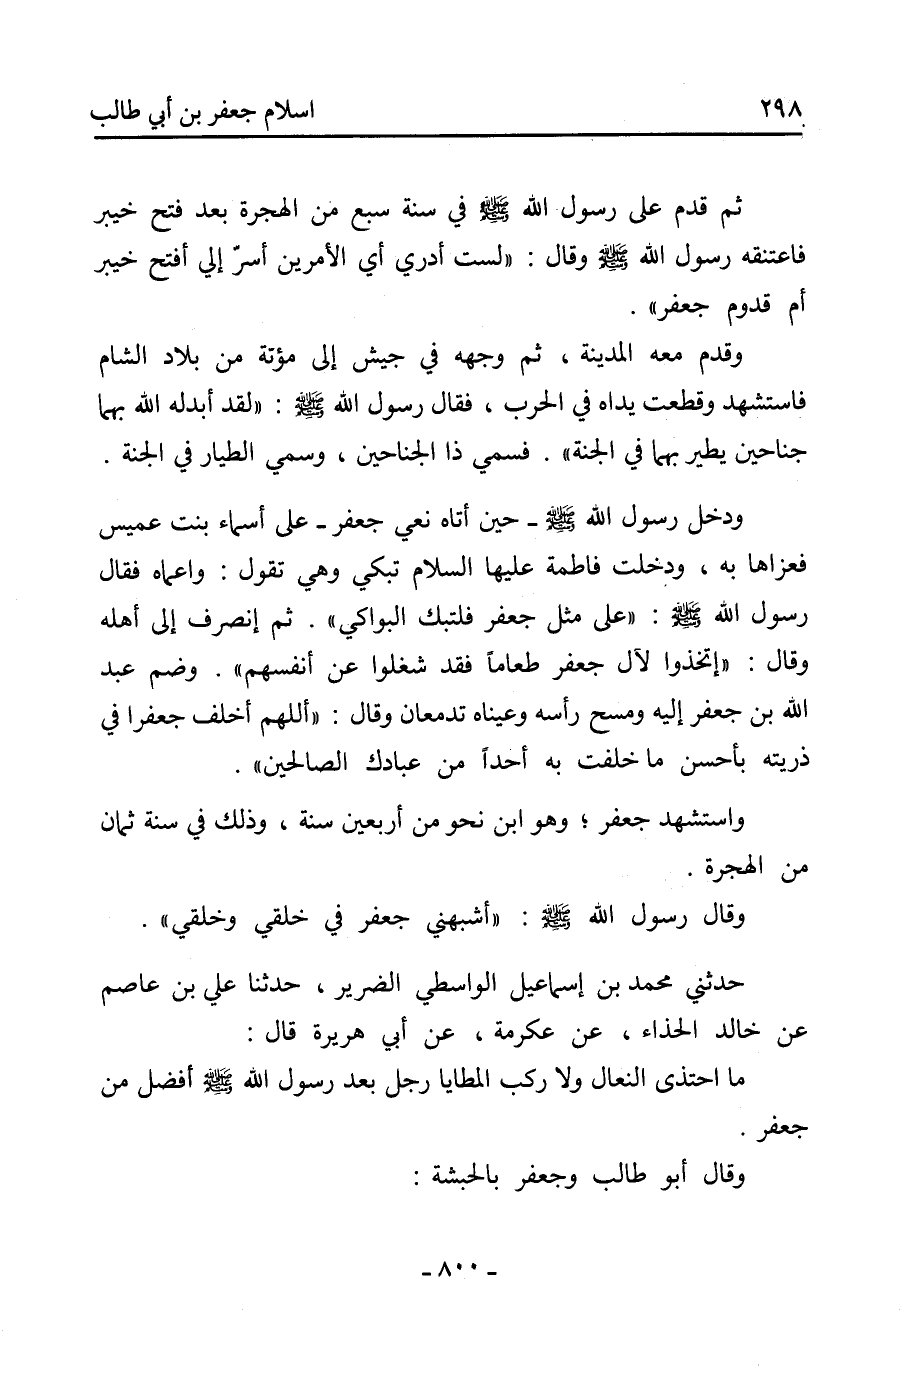 ٢٩٨ اسلام جعفر بن أبي طالب
ثم قدم على رسول الله ﷺ في سنة سبع من الهجرة بعد فتح خيبر
فاعتنقه رسول الله ﷺ وقال : «لست أدري أي الأمرين أسرّ إلي أفتح خيبر
أم قدوم جعفر» .
وقدم معه المدينة ، ثم وجهه في جيش إلى مؤتة من بلاد الشام
فاستشهد وقطعت يداه في الحرب ، فقال رسول الله ﷺ : «لقد أبدله الله بهما
جناحين يطير بهما في الجنة» . فسمي ذا الجناحين ، وسمي الطيار في الجنة .
ودخل رسول الله ﷺ ـ حين أتاه نعي جعفر ـ على أسماء بنت عميس
فعزاها به ، ودخلت فاطمة عليها السلام تبكي وهي تقول : واعماه فقال
رسول الله ﷺ : «على مثل جعفر فلتبك البواكي» . ثم إنصرف إلى أهله
وقال : «إتخذوا لآل جعفر طعاماً فقد شغلوا عن أنفسهم» . وضم عبد
الله بن جعفر إليه ومسح رأسه وعيناه تدمعان وقال : «أللهم أخلف جعفرا في
ذريته بأحسن ما خلفت به أحداً من عبادك الصالحين» .
واستشهد جعفر ؛ وهو ابن نحو من أربعين سنة ، وذلك في سنة ثمان
من الهجرة .
وقال رسول الله ﷺ : «أشبهني جعفر في خلقي وخلقي» .
حدثني محمد بن إسماعيل الواسطي الضرير ، حدثنا علي بن عاصم
عن خالد الحذاء ، عن عكرمة ، عن أبي هريرة قال :
ما احتذى النعال ولا ركب المطايا رجل بعد رسول الله ﷺ أفضل من
جعفر .
وقال أبو طالب وجعفر بالحبشة :
ـ ٨٠٠ ـ